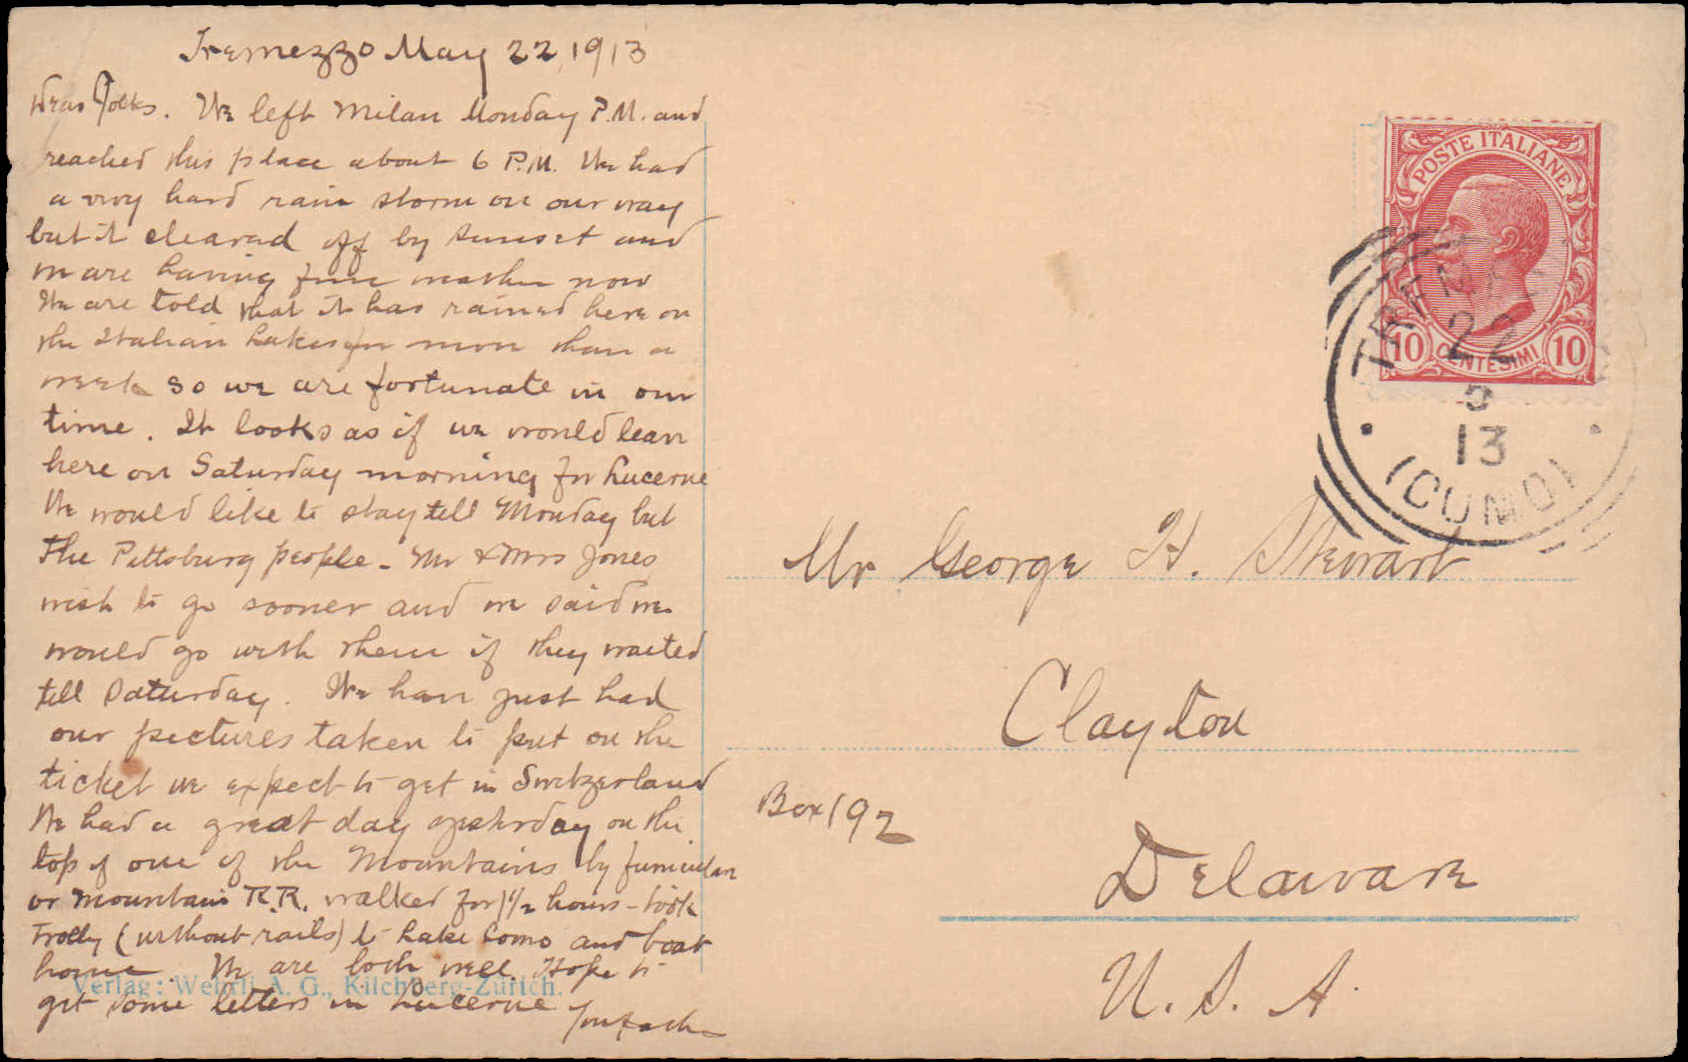 Tremezzo May 22, 1913
Dear Folks. We left Milan Monday P.M. and
reached this place about 6 P.M. We had
a very hard rain storm on our way
but it cleared off by sunset and
we are having fine weather now
We are told that it has rained here on
the Italian Lakes for more than a
week so we are fortunate in our
time. It looks as if we would leave
here on Saturday morning for Lucerne
We would like to stay till Monday but
the Pittsburg people - Mr & Mrs Jones
wish to go sooner and we said we
would go with them if they waited
till Saturday. We have just had
our pictures taken to put on the
ticket we expect to get in Switzerland
We had a great day yesterday on the
top of one of the Mountains by funicular
or mountain R.R. walked for 1 1/2 hours - took
Trolly (without rails) to Lake Como and boat
home. We are both well. Hope to
get some letters in Lucerne
Your father
Verlag: Wehrli A. G., Kilchberg-Zürich.
POSTE ITALIANE
10 CENTESIMI 10
TREM
22
5
13
(COMO)
Mr George H. Stewart
Clayton
Box 192
Delaware
U. S. A.